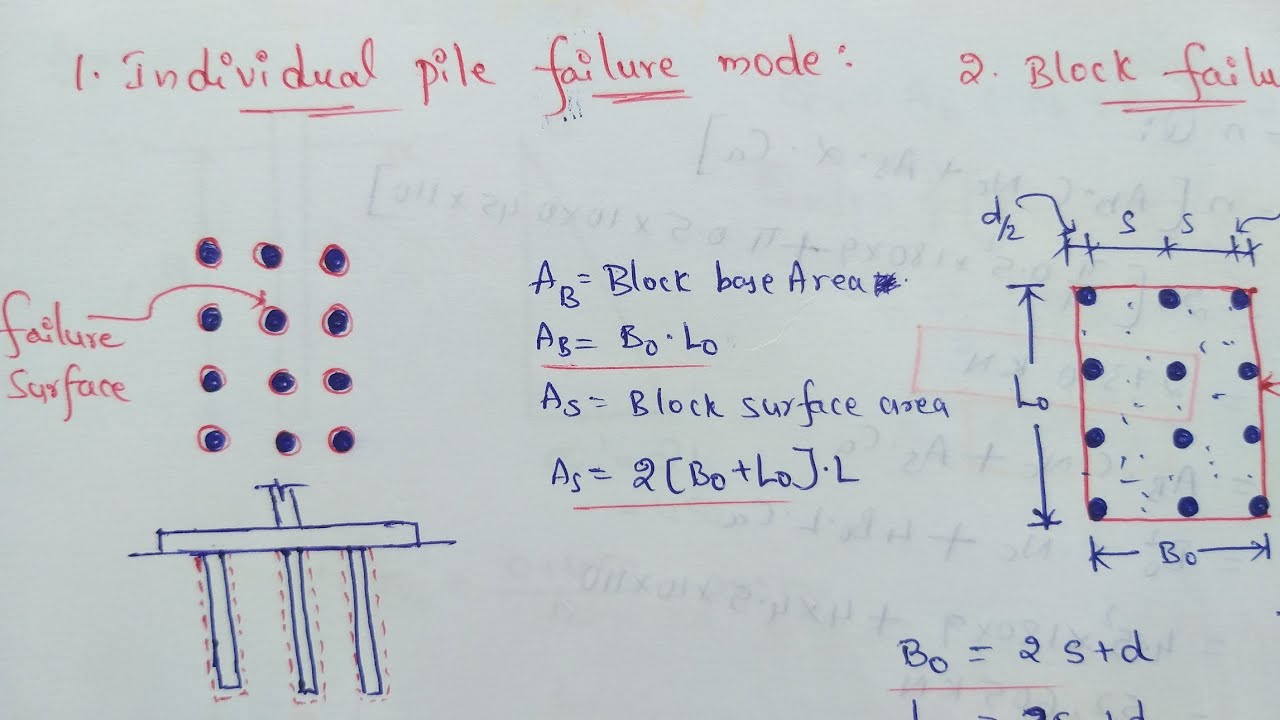 1. Individual pile failure mode:
2. Block failu
failure
surface
A_B = Block base Area.
A_B = B₀ · L₀
A_S = Block surface area
A_S = 2[B₀+L₀]·L
d/2
S S
L₀
B₀
B₀ = 2S+d